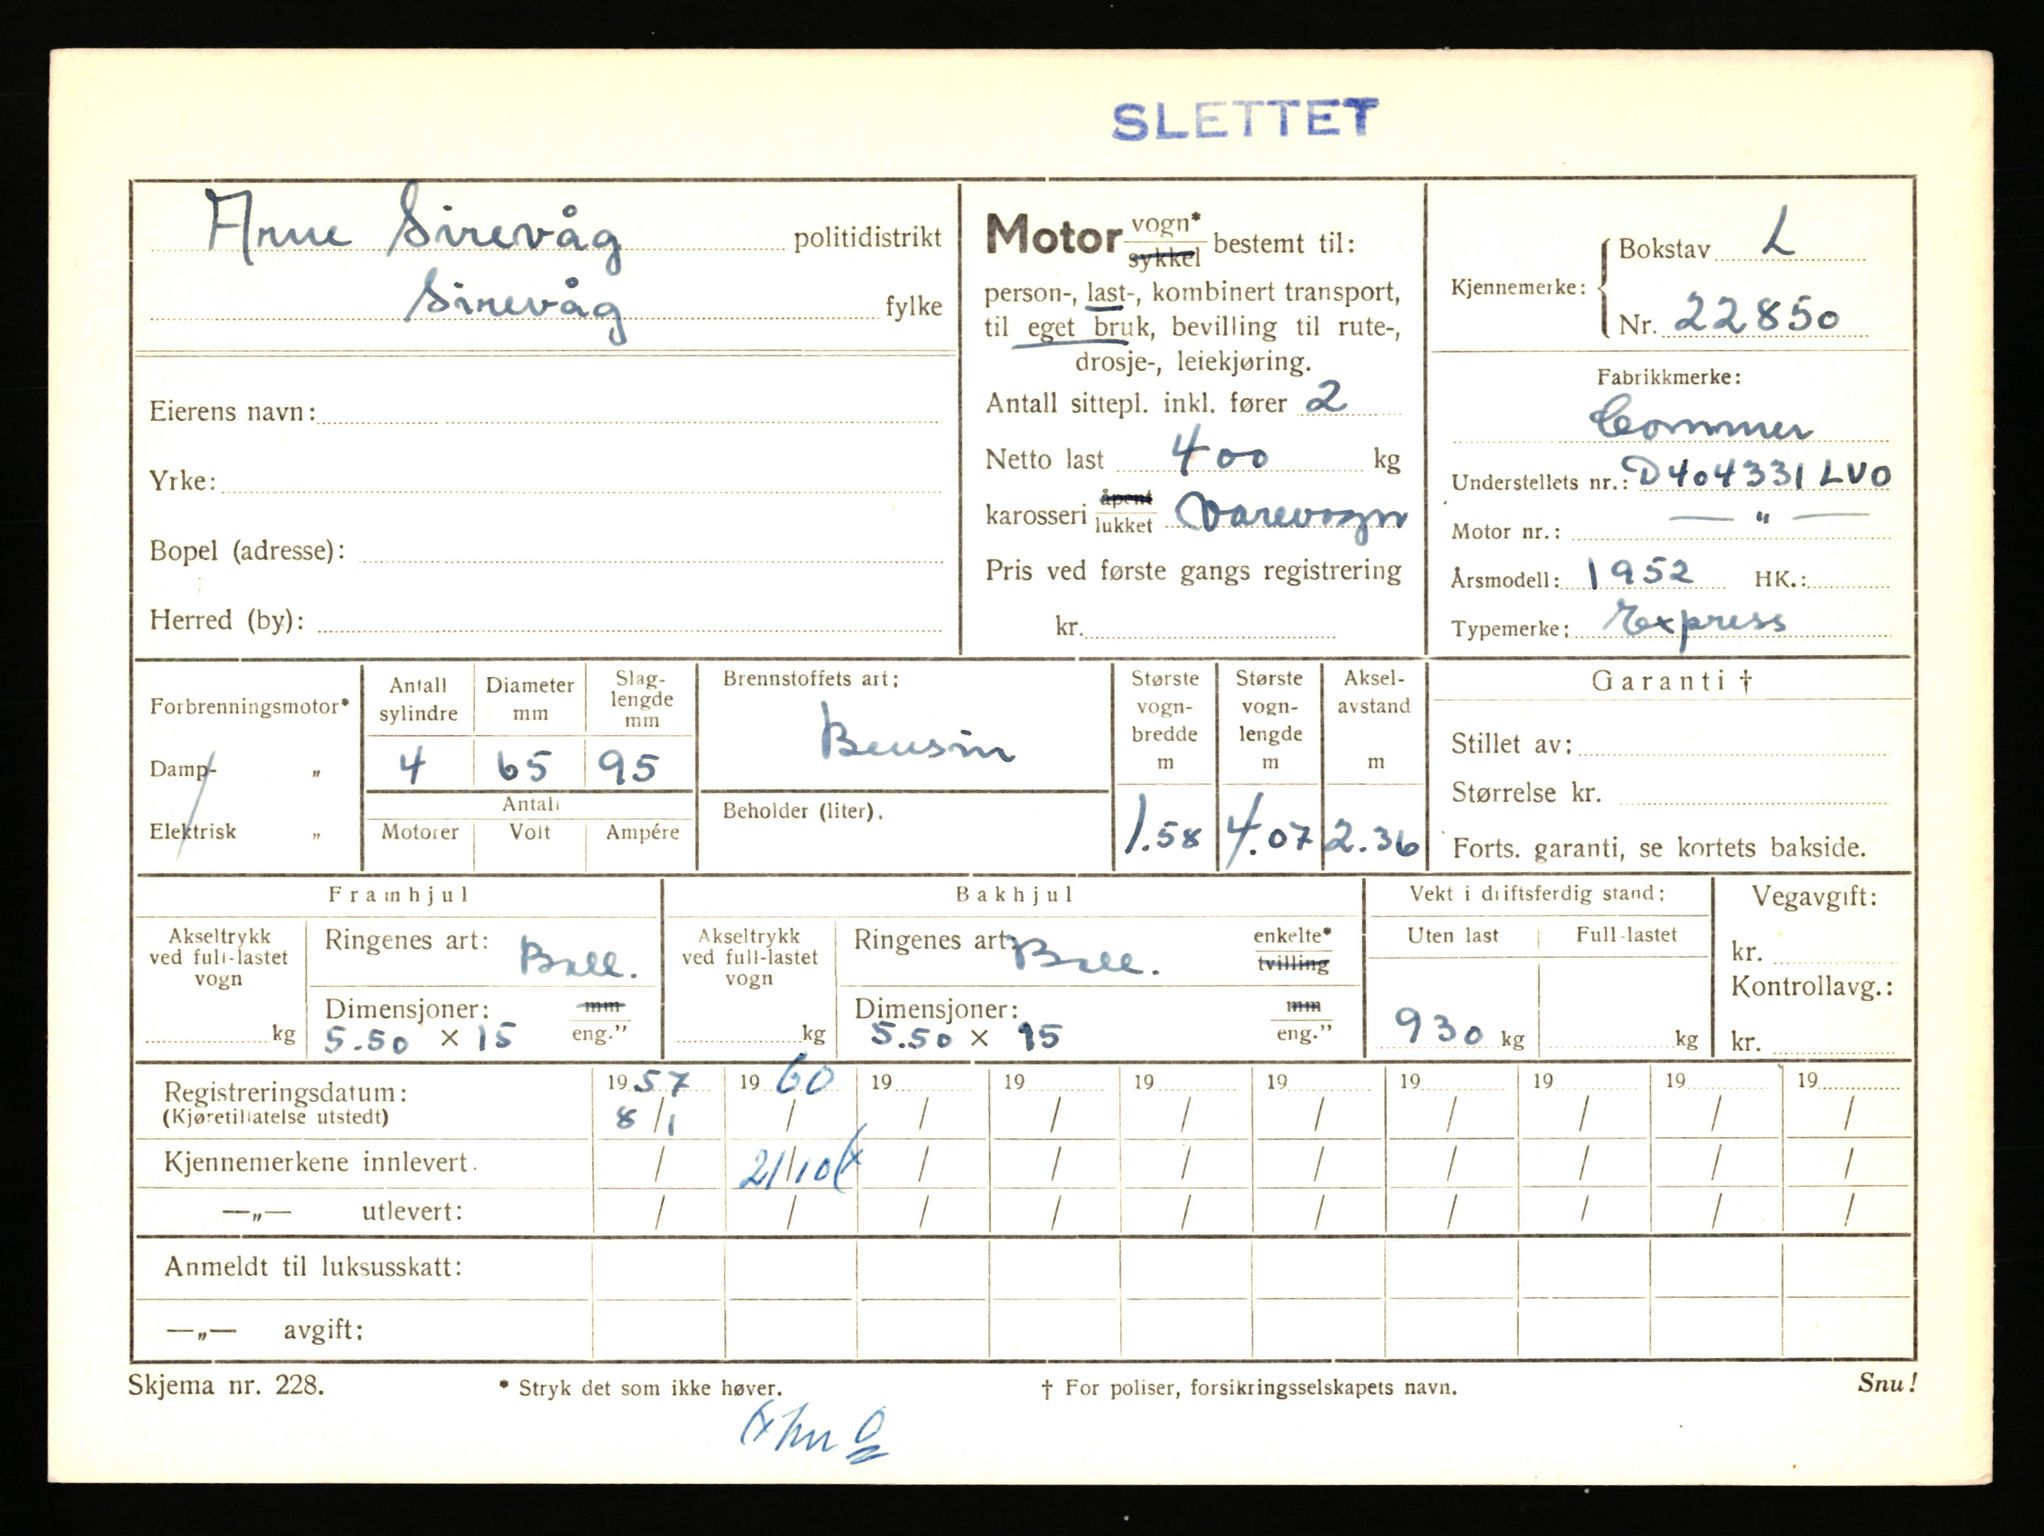 SLETTET
Arne Sirevåg politidistrikt
Sirevåg fylke
Eierens navn:
Yrke:
Bopel (adresse):
Herred (by):
Motor vogn* sykkel bestemt til:
person-, last-, kombinert transport,
til eget bruk, bevilling til rute-,
drosje-, leiekjøring.
Antall sittepl. inkl. fører 2
Netto last 400 kg
karosseri åpent lukket Varevogn
Pris ved første gangs registrering
kr.
Kjennemerke: Bokstav L
Nr. 22850
Fabrikkmerke:
Commer
Understellets nr.: D404331 LVO
Motor nr.: — " —
Årsmodell: 1952 HK.:
Typemerke: Express
Forbrenningsmotor*
Damp- „
Elektrisk „
Antall sylindre
Diameter mm
Slag-
lengde
mm
4 65 95
Antall
Motorer Volt Ampére
Brennstoffets art:
Bensin
Beholder (liter).
Største
vogn-
bredde
m
1.58
Største
vogn-
lengde
m
4.07
Aksel-
avstand
m
2.36
Garanti †
Stillet av:
Størrelse kr.
Forts. garanti, se kortets bakside.
Framhjul
Akseltrykk
ved full-lastet
vogn
kg
Ringenes art: Ball.
Dimensjoner: mm
5.50 × 15 eng.”
Bakhjul
Akseltrykk
ved full-lastet
vogn
kg
Ringenes art: Ball. enkelte*
tvilling
Dimensjoner: mm
5.50 × 15 eng.”
Vekt i driftsferdig stand:
Uten last Full-lastet
930 kg kg
Vegavgift:
kr.
Kontrollavg.:
kr.
Registreringsdatum: 1957 1960 19 19 19 19 19 19 19 19
(Kjøretillatelse utstedt) 8/1 / / / / / / / / /
Kjennemerkene innlevert. / 21/10 (x / / / / / / / /
—„— utlevert: / / / / / / / / / /
Anmeldt til luksusskatt:
—„— avgift:
Skjema nr. 228. * Stryk det som ikke høver. † For poliser, forsikringsselskapets navn. Snu!